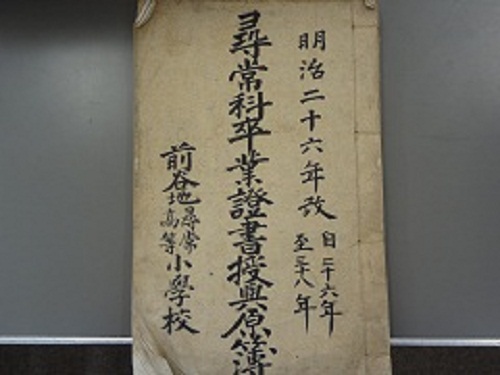 明治二十六年改
自二十六年
至三十八年
尋常科卒業證書授與原簿
前谷地尋常高等小學校